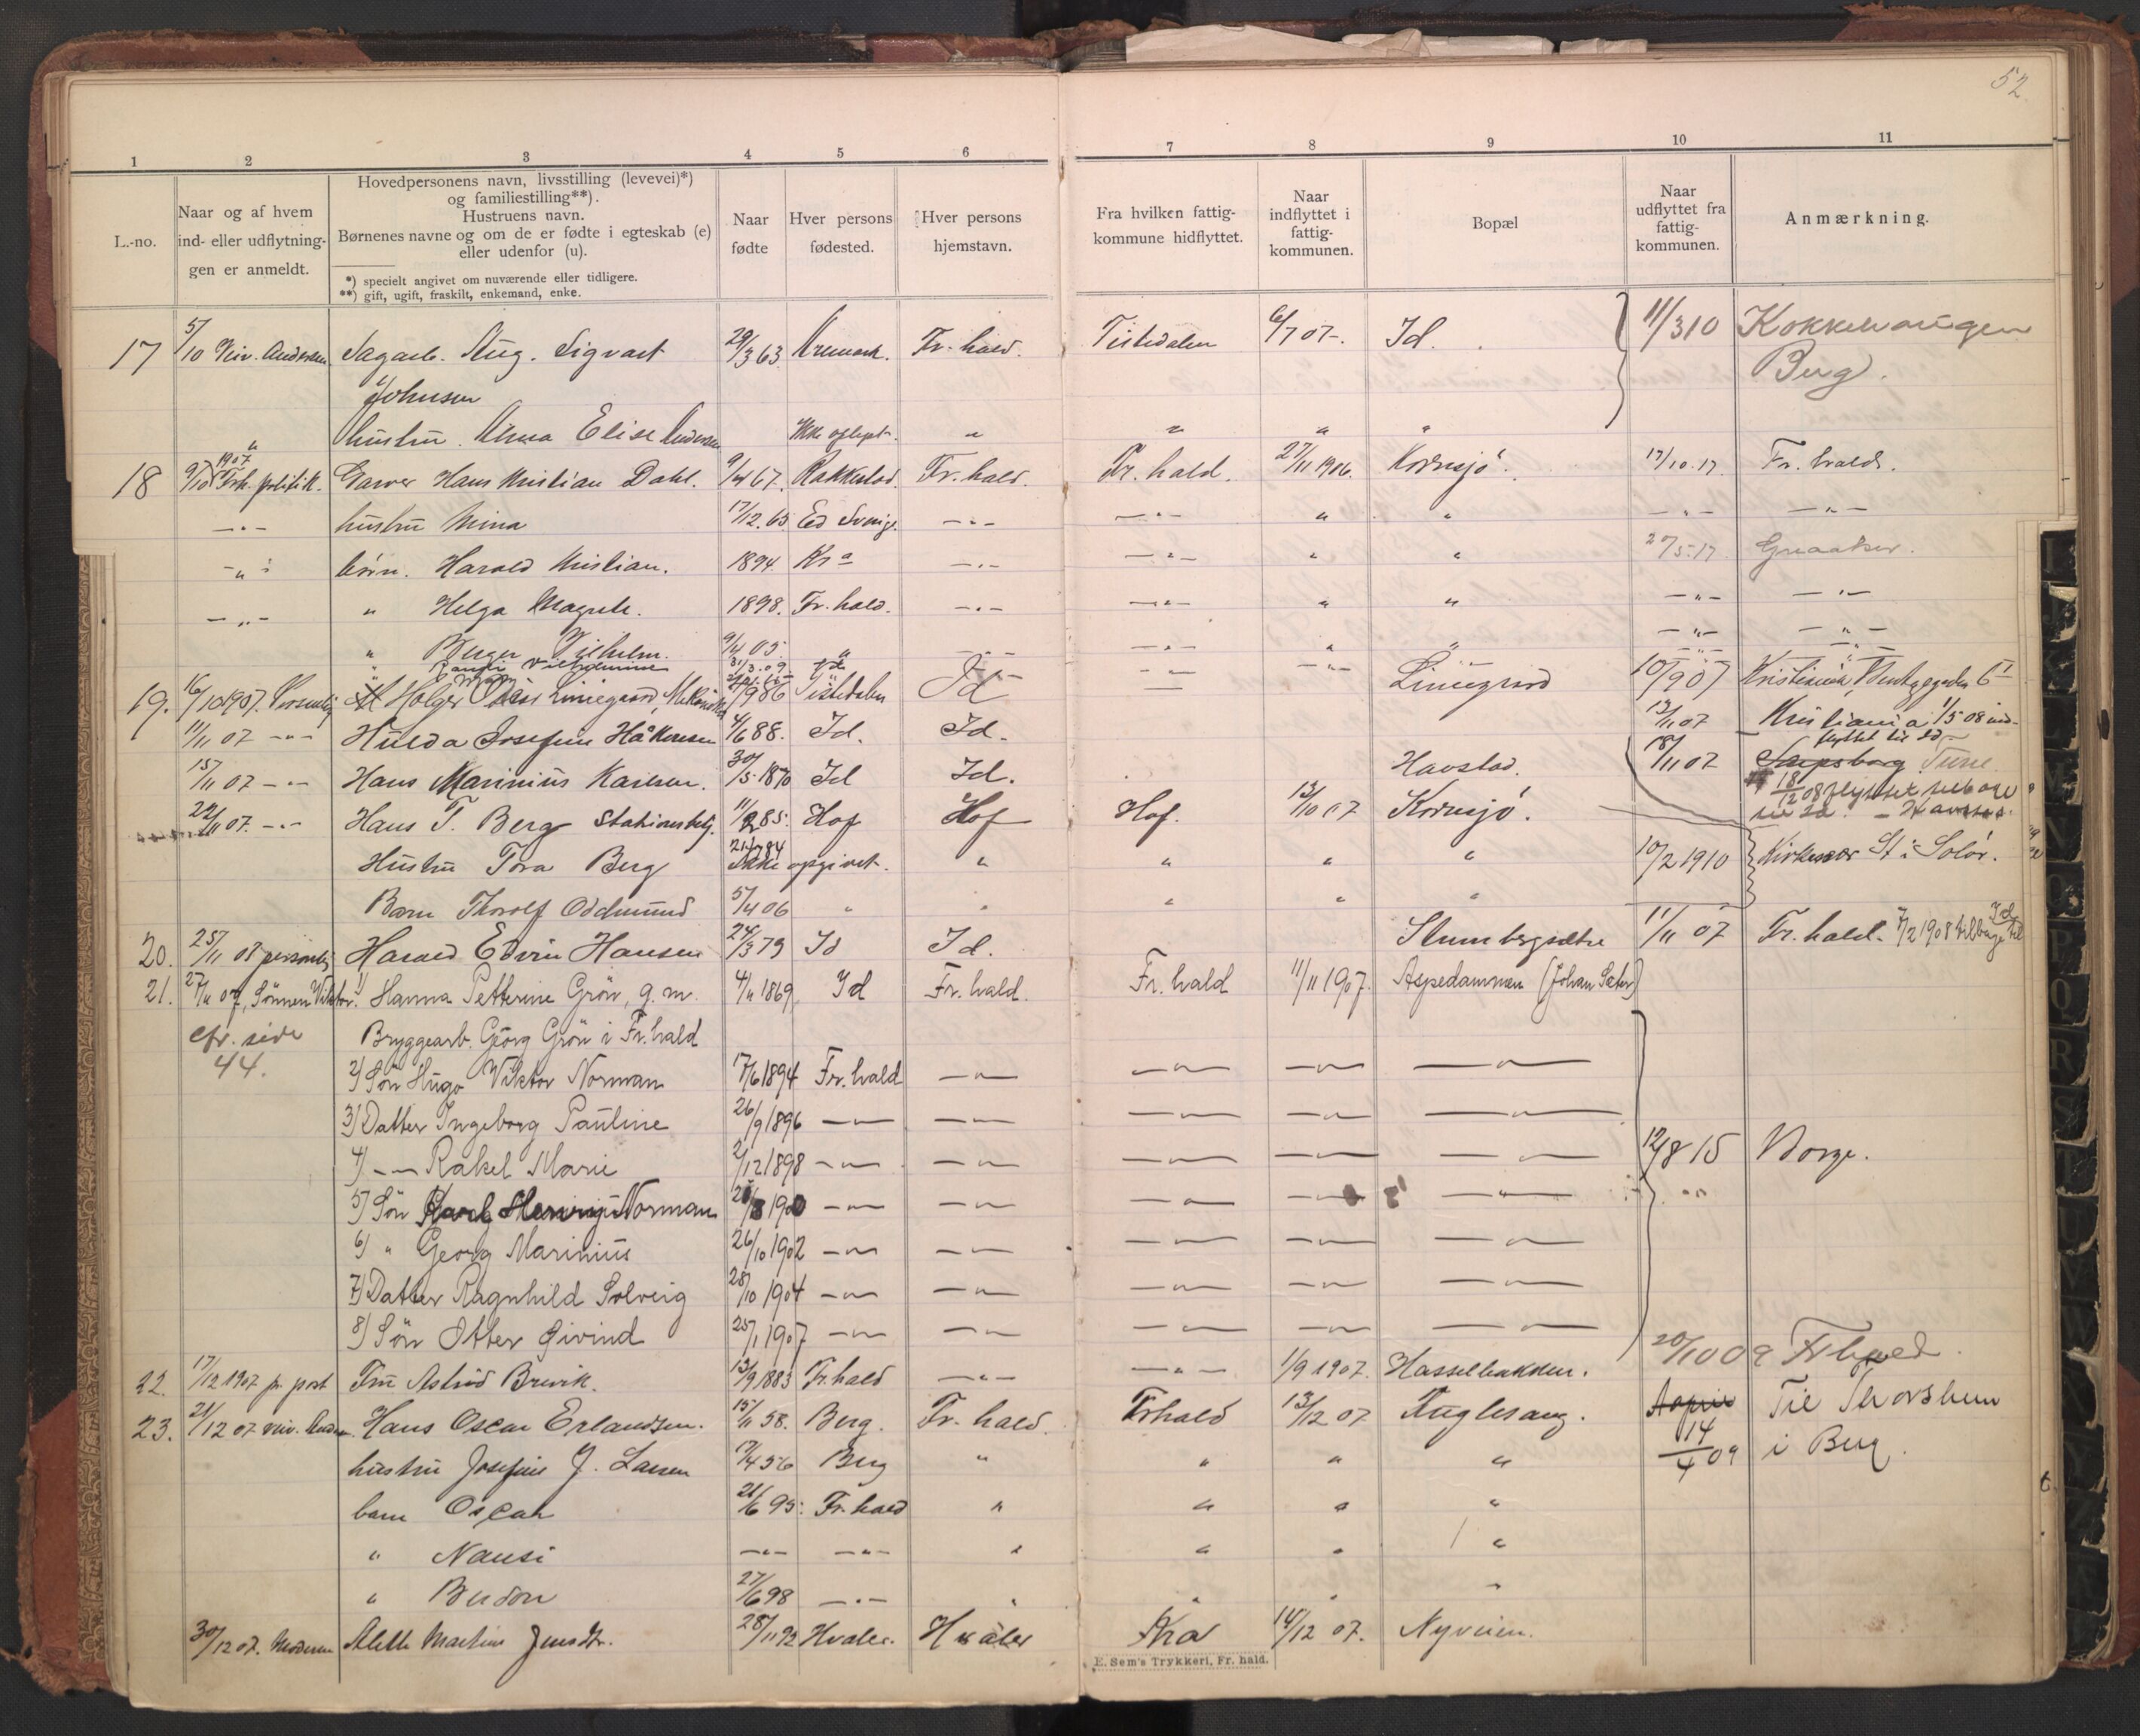 52
1 2 3 4 5 6 7 8 9 10 11
L.-no.
Naar og af hvem
ind- eller udflytnin-
gen er anmeldt.
Hovedpersonens navn, livsstilling (levevei)*)
og familiestilling**).
Hustruens navn.
Børnenes navne og om de er fødte i egteskab (e)
eller udenfor (u).
*) specielt angivet om nuværende eller tidligere.
**) gift, ugift, fraskilt, enkemand, enke.
Naar
fødte
Hver persons
fødested.
Hver persons
hjemstavn.
Fra hvilken fattig-
kommune hidflyttet.
Naar
indflyttet i
fattig-
kommunen.
Bopæl
Naar
udflyttet fra
fattig-
kommunen.
Anmærkning.
17 5/10 Viv. Andersen Sagarb. Aug. Sigvart 29/3 63 Aremark. Fr. hald. Tistedalen 6/7 07. Id. 11/3 10
Johnsen Berg.
" hustru Anna Elise Andersen Ikke oplyst. " " " "
18 9/10 1907 Frh. politik. Garver Hans Kristian Dahl. 9/4 67. Rakkestad. Fr. hald. Fr. hald. 27/11 1906. Kornsjø. 17/10.17. Fr. hald.
—"— hustru Mina 17/12.65 Ed Sverige —"— —"— " " —"— —"—
—"— børn. Harald Kristian. 1894. Kra —"— —"— " " 27/5.17.
—"— " Helga Magrete. 1898. Fr. hald. —"— —"— " " —"— —"—
" Birger Vilhelm. 9/4 05. " —"— —"— " " —"— —"—
" Vilhelmine 31/3.09
19. 16/10 1907. Holger Liniegaard, 9 86 Tistedalen Id Liniegrind 10/9 07 Kristiania,
11/11 07 —"— Hulda Josefine Håkensen 4/6 88. Id. Id. 13/11 07 Kristiania 1/5 08 ind-
flyttet til Id
15/11 07 —"— Hans Marinius Karlsen. 30/5 1870 Id Id. Havstad. 18/11 07 Sarpsborg Tune
18/12 08 flyttet tilbage
til Id. — Havstad.
22/11 07. —"— Hans T. Berg Stationsbetj. 11/2 85. Hof Hof Hof. 13/10 07 Kornsjø.
Hustru Tora Berg 21/1 84 Ikke opgivet. " " " " 10/2 1910 Kirkenær St i Solør.
Barn Thorolf Oddmund 5/4 06 " " " " "
20. 25/11 08 personlig Harald Edvin Hansen 24/3 79 Id Id. Stumbergsætre 11/11 07 Fr. hald. 7/2 1908 tilbage til Id
21. 27/11 07, Sönnen Viktor. 1) Hanna Petterine Grön, g. m. 4/11 1869 Id Fr. hald. Fr. hald 11/11 1907. Aspedammen (Johan Sæter)
cfr. side Bryggearb. Georg Grön i Fr. hald
44. 2) Sön Hugo Viktor Norman 17/6 1894 Fr. hald —"— —"— —"— —"—
3) Datter Ingeborg Pauline 26/9 1896 —"— —"— —"— —"— —"—
4) —"— Rakel Marie 2/12 1898 —"— —"— —"— —"— —"— 12/8 15 Borge.
5) Sön Karl Norman 1900 —"— —"— —"— —"— —"— "
6) " Georg Marinius 26/10 1902 —"— —"— —"— —"— —"—
7) Datter Ragnhild Solveig 28/10 1904 —"— —"— —"— —"— —"—
8) Sön Otter Eivind 25/1 1907 —"— —"— —"— —"— —"—
22. 17/12 1907 pr. post Fru Astrid Brevik. 13/9 1883 Fr. hald —"— —"— 1/9 1907. Hasselbakken. 20/10 09 Frhald.
23. 21/12 07 Hans Oscar Erlandsen. 15/11 58. Berg. Fr. hald. Frhald 13/12 07 Fuglesang. April Til Thorshem
14/4 09 i Berg.
hustru Josefine J. Larsen 17/4 56 Berg " " " "
barn Oscar 21/6 95. Fr. hald " " " "
" Nansi —"— —"— " " " "
" 27/6 98 —"— " " " "
30/12 07. Moderen Alette Martine 28/11 92 Hvaler. Hvaler Kra 14/12 07. Nyveien.
E. Sem's Trykkeri, Fr. hald.